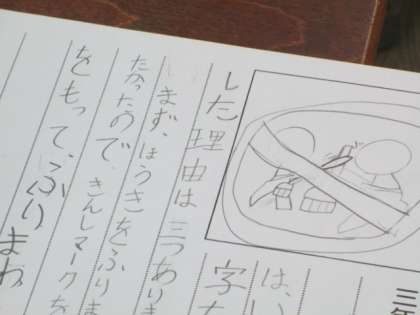 三年
は、い
字
した理由は三つありま
まず、ほうきをふりま
たかったので、きんしマークを
をもって、ふりまわ